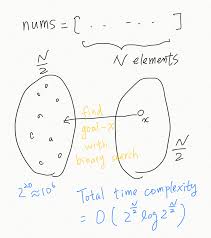 nums = [ .. .... .. ]
N elements
N/2
find
goal-x
with
binary search
x
N/2
2^20 ≈ 10^6
Total time complexity
= O ( 2^(N/2) log 2^(N/2) )